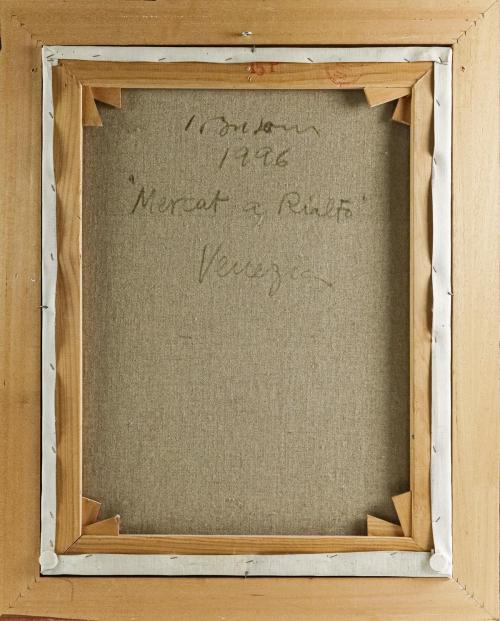 1996
"Mercat a Rialto"
Venezia